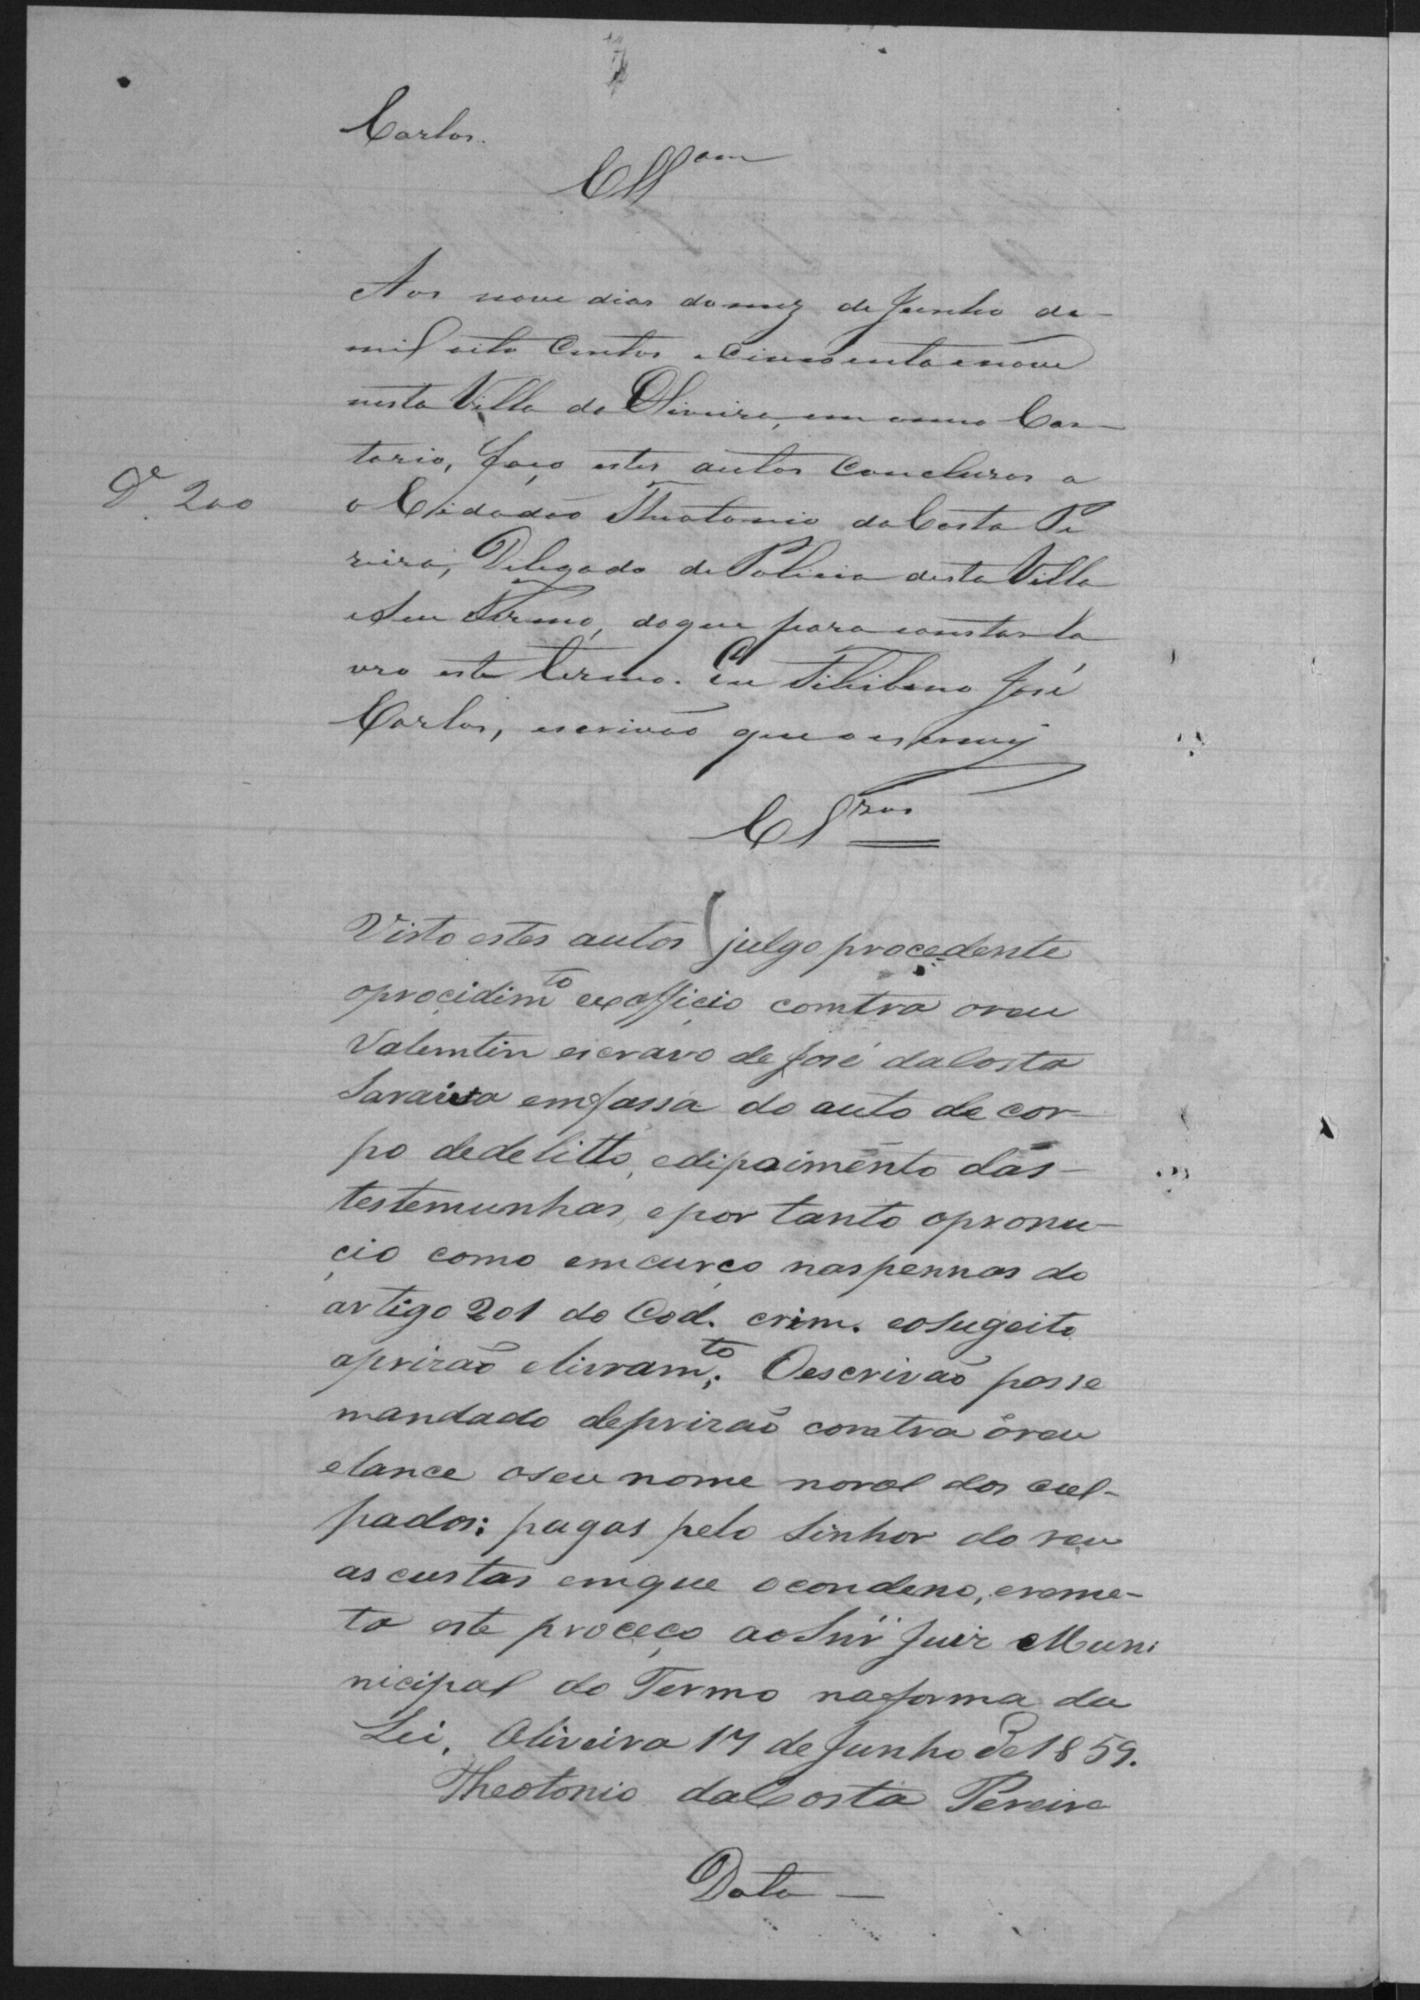 Carlos.
Cll.am
Aos nove dias do mez de Junho de
mil oito Centos e Cincoenta e nove
nesta Villa de Oliveira, em o meu Car-
torio, faço estes autos Concluzos a
o Cidadão Theotonio da Costa Pe
reira, Delegado de Policia desta Villa
e seu Termo, do que para constar la
D.e 200
vro este termo. Eu José
Carlos, escrivão que o escrevy
Cl.zos
Visto estes autos julgo procedente
oproçidim.to exofficio comtra oreu
Valemtin escravo de José da Costa
Saraiva em fassa do auto de cor-
po dedelitto, edipoimento das
testemunhas, e por tanto opronu-
çio como emcurço nas pennas do
artigo 201 do Cod. crim. eosugeito
aprizão elivram.to; Oescrivão passe
mandado deprizão comtra oreu
elance oseu nome norol dos cul-
pados: pagas pelo Sinhor do reu
as custas emque ocondeno, ereme-
to este proceço ao Snr Juiz Muni
nicipal do Termo na forma da
Lei. Oliveira 17 de Junho de 1859.
Theotonio da Costa Pereira
Data —